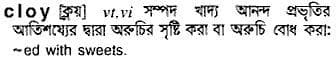 cloy [ক্লয়] vt,vi সম্পদ খাদ্য আনন্দ প্রভৃতির
আতিশয্যের দ্বারা অরুচির সৃষ্টি করা বা অরুচি বোধ করা:
~ed with sweets.